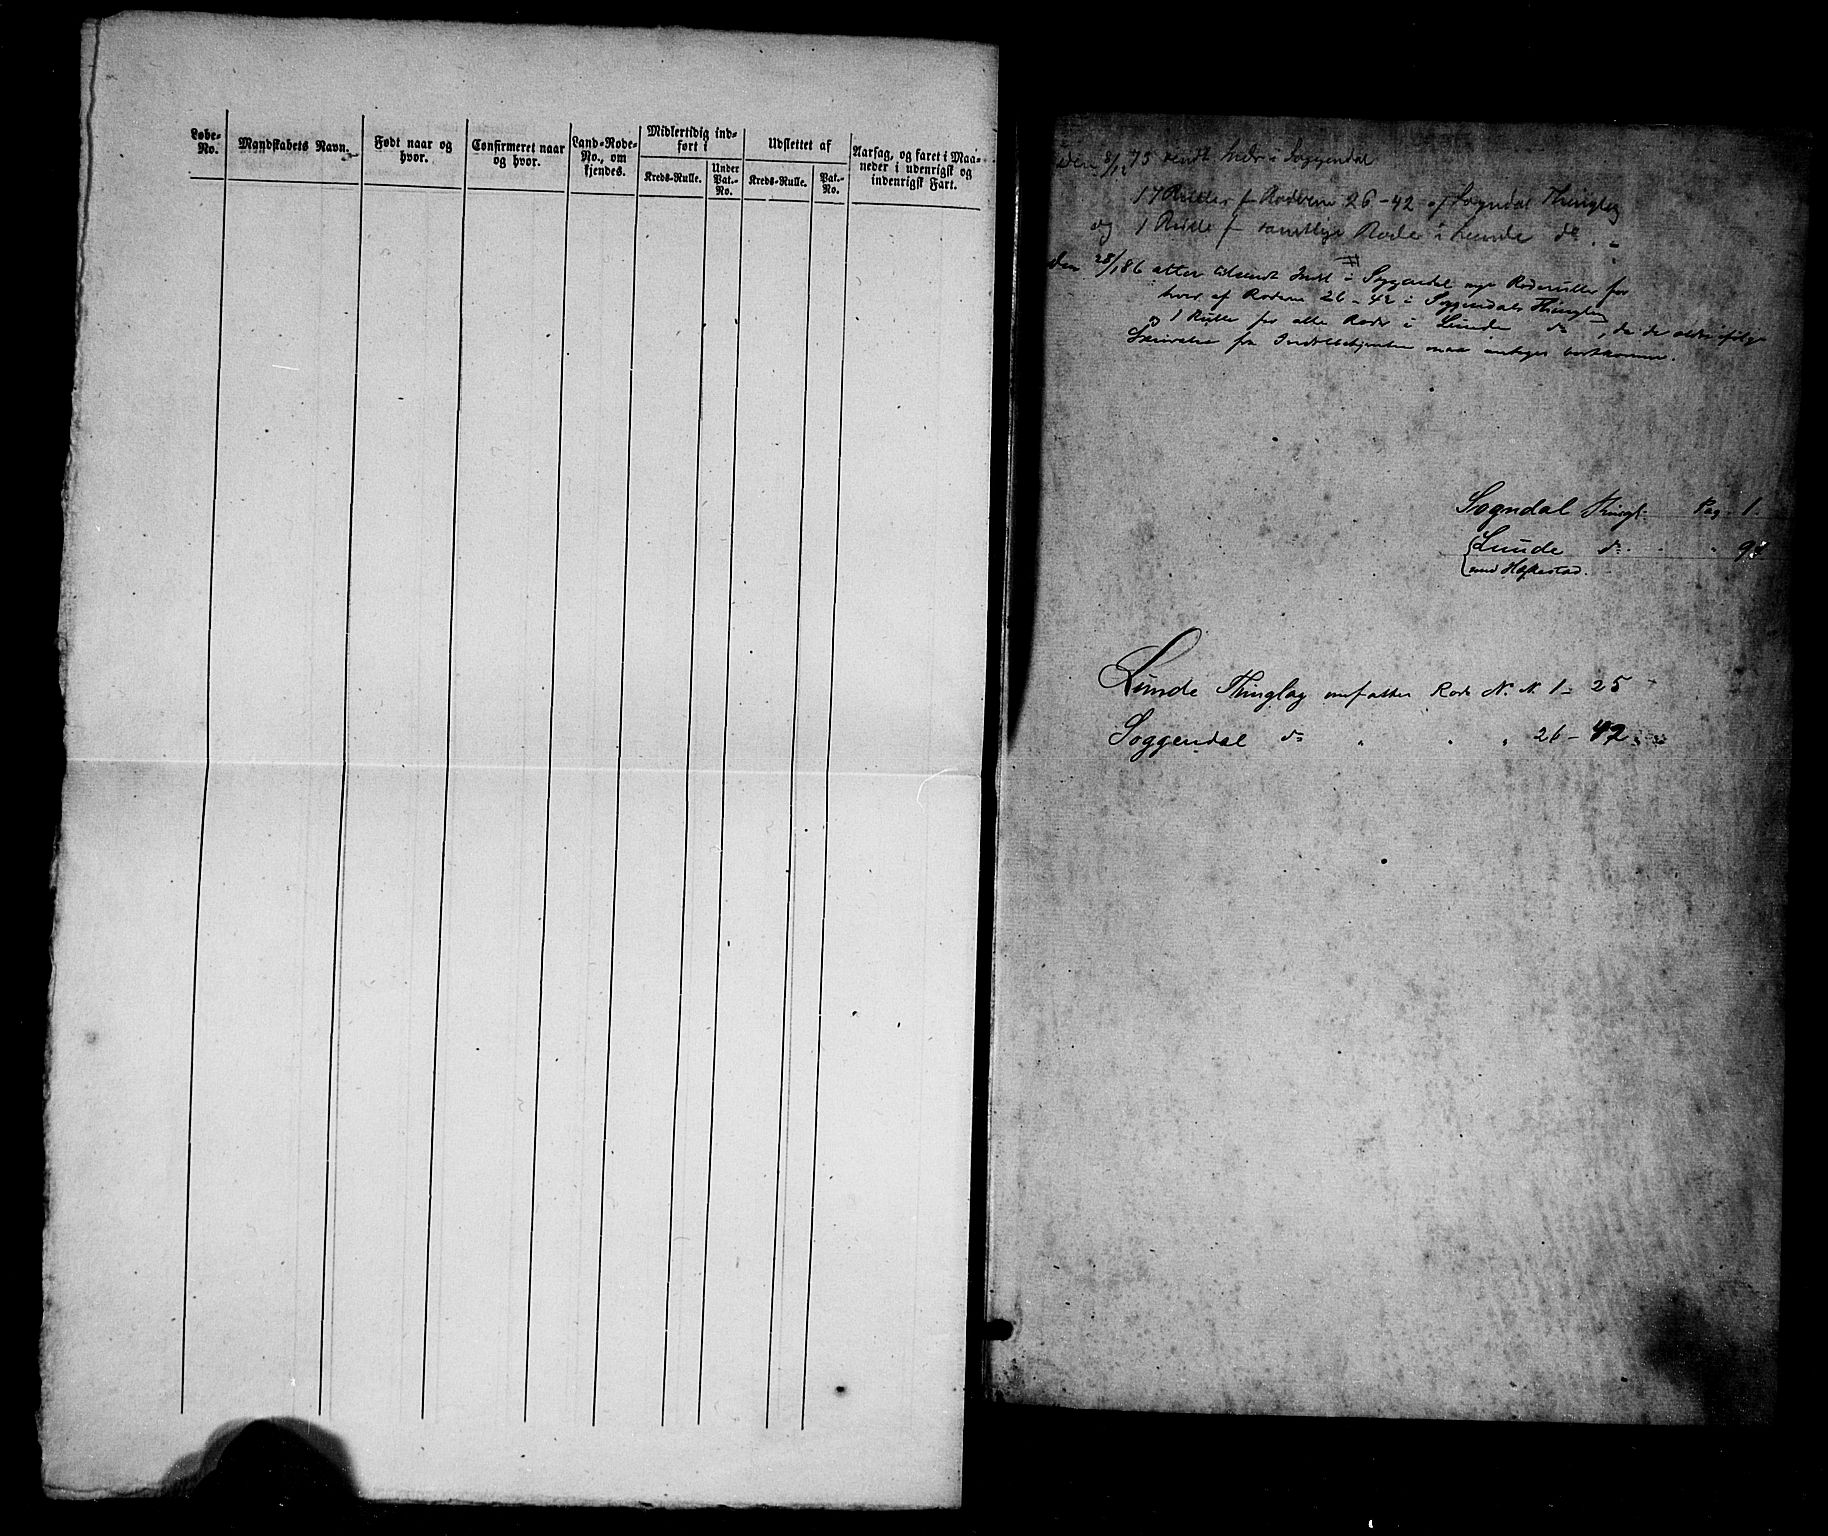 Løbe-No.
Mandskabets Navn.
Født naar og hvor.
Confirmeret naar og hvor.
Land-Rode-No., om kjendes.
Midlertidig indført i
Kreds-Rulle.
Under Pat.-No.
Udslettet af
Kreds-Rulle.
Pat.-No.
Aarsag, og faret i Maaneder i udenrigsk og indenrigsk Fart.
den 8/12 75 sendt Indr i Soggendal
17 Ruller f Roderne 26-42 af Sogndal Thinglag
og 1 Rulle f samtlige Rode i Lunde do. "
den 28/1 86 atter tilsendt Indl i Soggendal nye Roderuller for
hver af Roderne 26-42 i Soggendals Thinglag
og 1 Rulle for alle Roder i Lunde do, da de ældre ifølge
Skrivelse fra maa antages bortkomne.
Sogndal Thingl. Pag. 1.
Lunde do. " "
med Heskestad.
Lunde Thinglag omfatter Rode N. N. 1-25
Soggendal do " " " 26-42